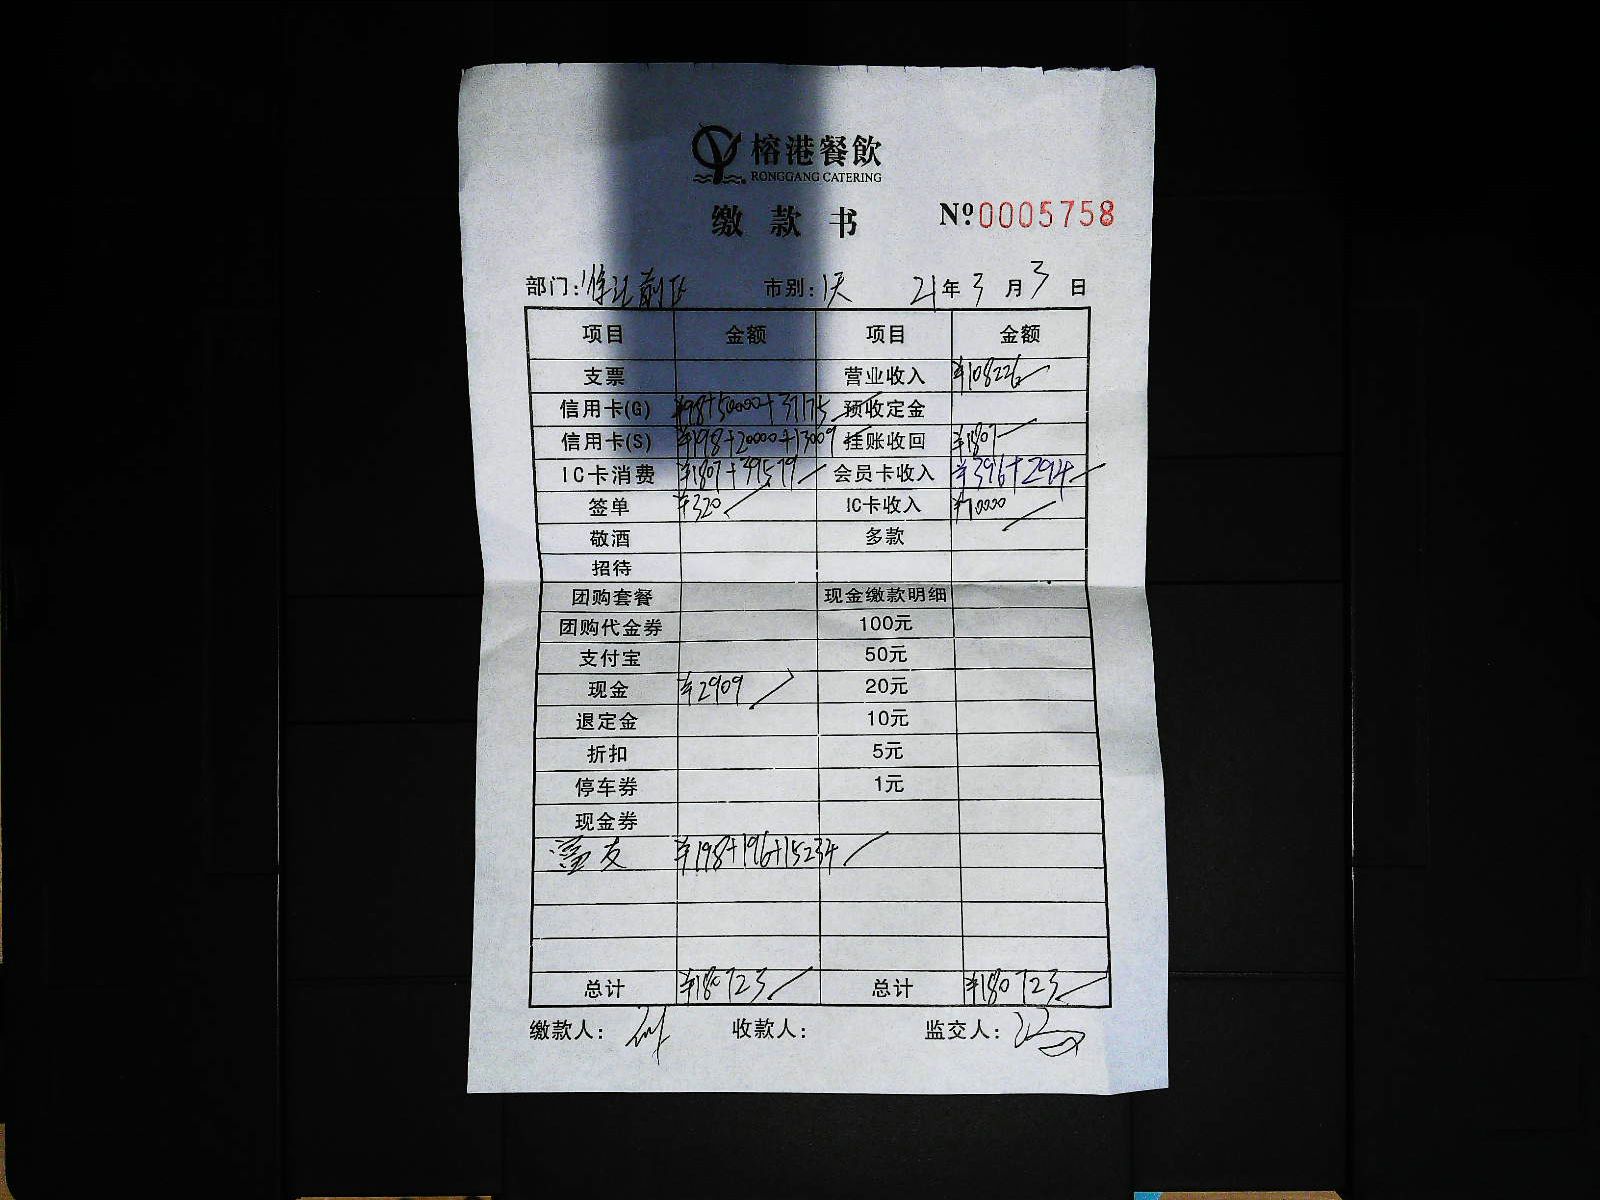 榕港餐飲
RONGGANG CATERING
缴款书 №0005758
部门: 市别: 21年3月3日
项目 金额 项目 金额
支票 营业收入 ¥108226
信用卡(G) ¥98+50000+37175 预收定金
信用卡(S) ¥198+20000+13009 挂账收回 ¥1807
IC卡消费 ¥1807+39579 会员卡收入 ¥396+294
签单 ¥320 IC卡收入 ¥70000
敬酒 多款
招待
团购套餐 现金缴款明细
团购代金券 100元
支付宝 50元
现金 ¥2909 20元
退定金 10元
折扣 5元
停车券 1元
现金券
¥198+196+15234
总计 ¥180723 总计 ¥180723
缴款人: 收款人: 监交人: